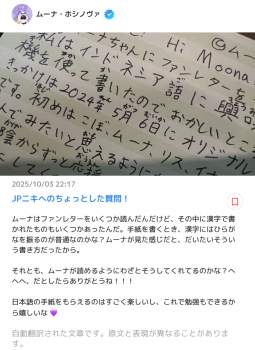 ムーナ・ホシノヴァ
Hi Moona
©ムー
私は
ナちゃんにファンレターを
機を使って書いたのでおかしいところ
インドネシア語に
きっかけは2024年5月6日に
オリジナル
初めはこぼムーナリス、イ
てみたいと思えるように
2025/10/03 22:17
JPニキへのちょっとした質問！
ムーナはファンレターをいくつか読んだんだけど、その中に漢字で書
かれたものもいくつかあったんだ。手紙を書くとき、漢字にはひらが
なを振るのが普通なのかな？ムーナが見た感じだと、だいたいそうい
う書き方だったから。
それとも、ムーナが読めるようにわざとそうしてくれてるのかな？へ
へへ、だとしたらありがとうね！！！
日本語の手紙をもらえるのはすごく楽しいし、これで勉強もできるか
ら嬉しいな 💜
自動翻訳された文章です。原文と表現が異なることがありま
す。